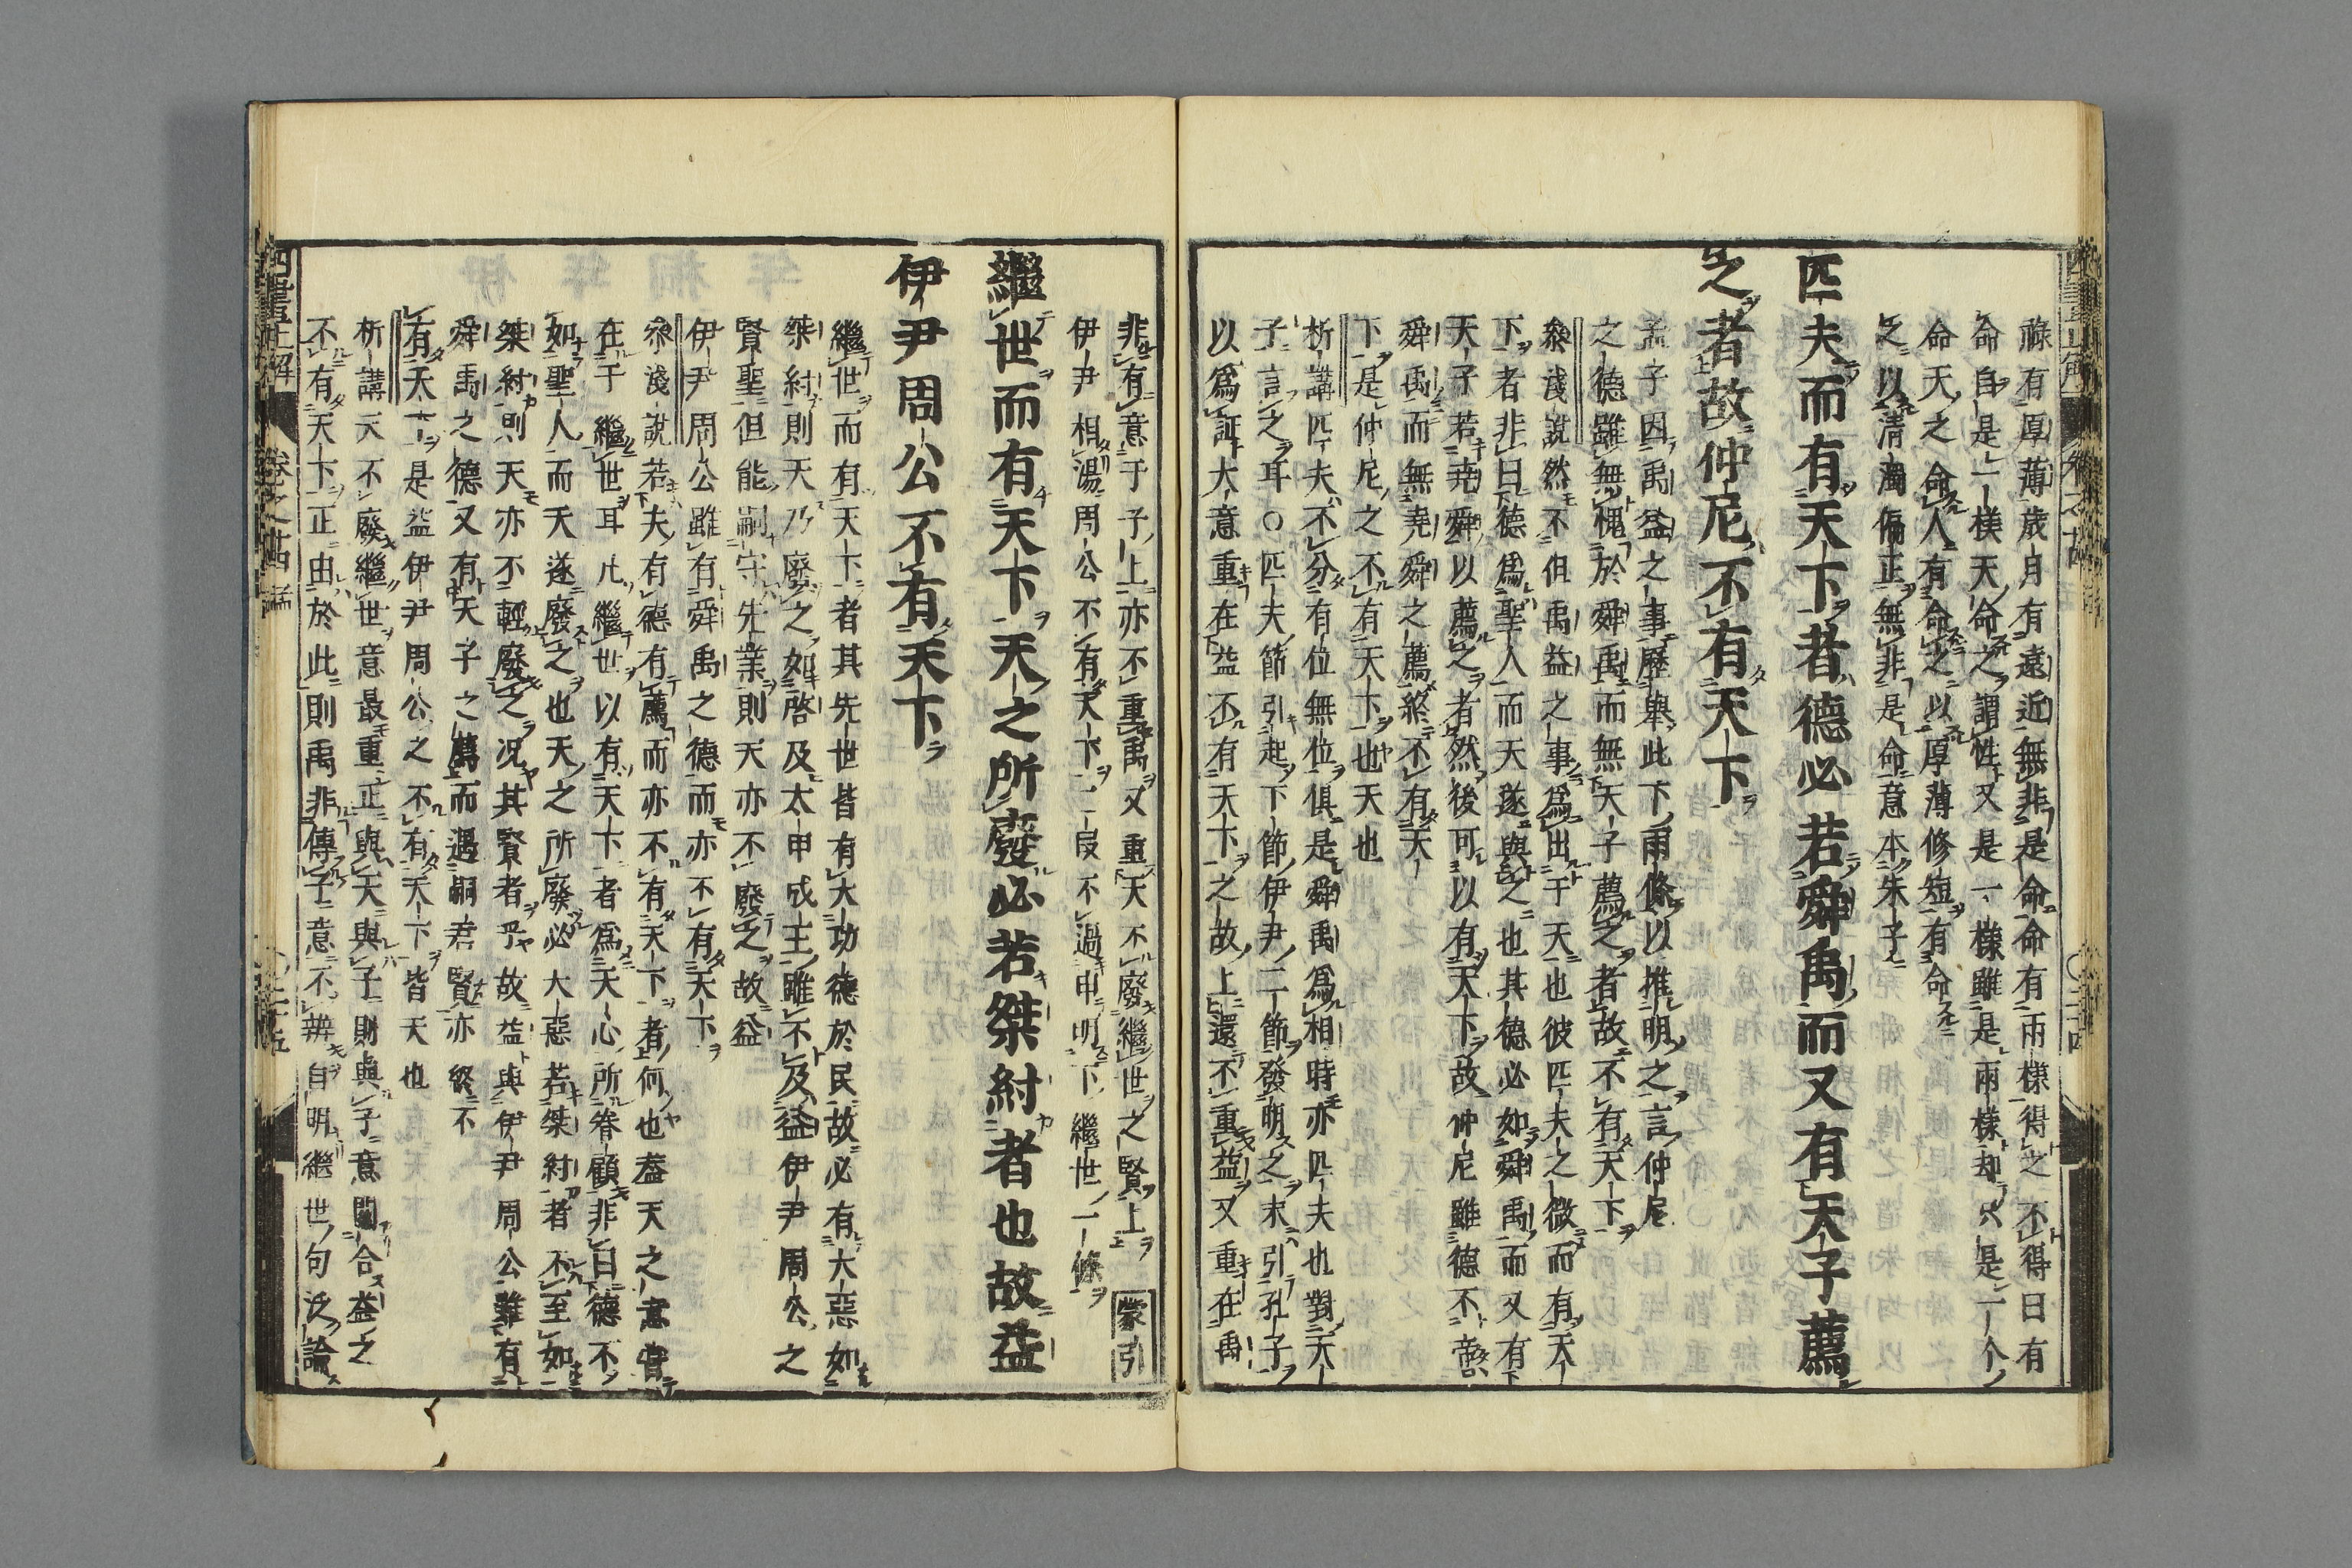 祿有厚薄歲月有遠近無非是命命有兩樣得之不得曰有
命自是一樣天命之謂性又是一樣雖是兩樣却只是一个
命天之命人有命之以厚薄修短有命
之以清濁偏正無非是命意本朱子
匹夫而有天下者德必若舜禹而又有天子薦
之者故仲尼不有天下
孟子因禹益之事歷舉此下兩條以推明之言仲尼
之德雖無愧於舜禹而無天子薦之者故不有天下
淺說然不但禹益之事爲出于天也彼匹夫之微而有天
下者非曰德爲聖人而天遂與之也其德必如舜禹而又有
天子若堯舜以薦之者然後可以有天下故仲尼雖德不啻
舜禹而無堯舜之薦終不有天
下是仲尼之不有天下也天也
析講匹夫不分有位無位俱是舜禹爲相時亦匹夫也對天
子言之耳○匹夫節引起下節伊尹二節發明之末引孔子
以爲証大意重在益不有天下之故上還不重益又重在禹
非有意于子上亦不重禹又重天不廢繼世之賢上 蒙引
伊尹相湯周公不有天下二段不過申明上繼世一條
繼世而有天下天之所廢必若桀紂者也故益
伊尹周公不有天下
繼世而有天下者其先世皆有大功德於民故必有大惡如
桀紂則天乃廢之如啓及太甲成王雖不及益伊尹周公之
賢聖但能嗣守先業則天亦不廢之故益
伊尹周公雖有舜禹之德而亦不有天下
淺說若夫有德有薦而亦不有天下者何也蓋天之意嘗
在于繼世耳凡繼世以有天下者爲天心所眷顧非曰德不
如聖人而天遂廢之也天之所廢必大惡若桀紂者不至如
桀紂則天亦不輕廢之况其賢者乎故益與伊尹周公雖有
舜禹之德又有天子之薦而遇嗣君賢亦終不
有天下是益伊尹周公之不有天下皆天也
析講天不廢繼世意最重正與天與子則與子意關合益之
不有天下正由於此則禹非傳子意不辨自明繼世句泛論